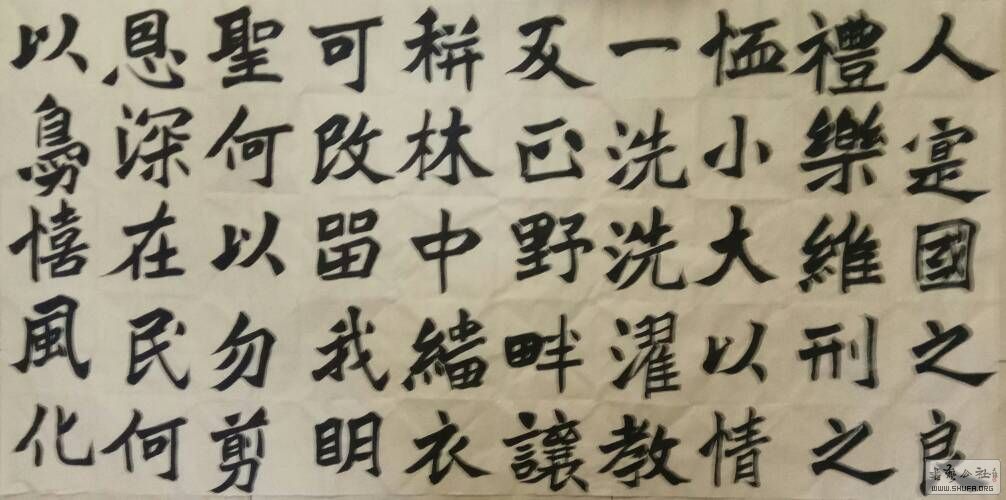 人寔國之良
禮樂維刑之
恤小大以情
一洗洗濯教
正野畔讓
林中緇衣
可改留我明
聖何以勿剪
恩深在民何
以憘風化
WWW.SHUFA.ORG